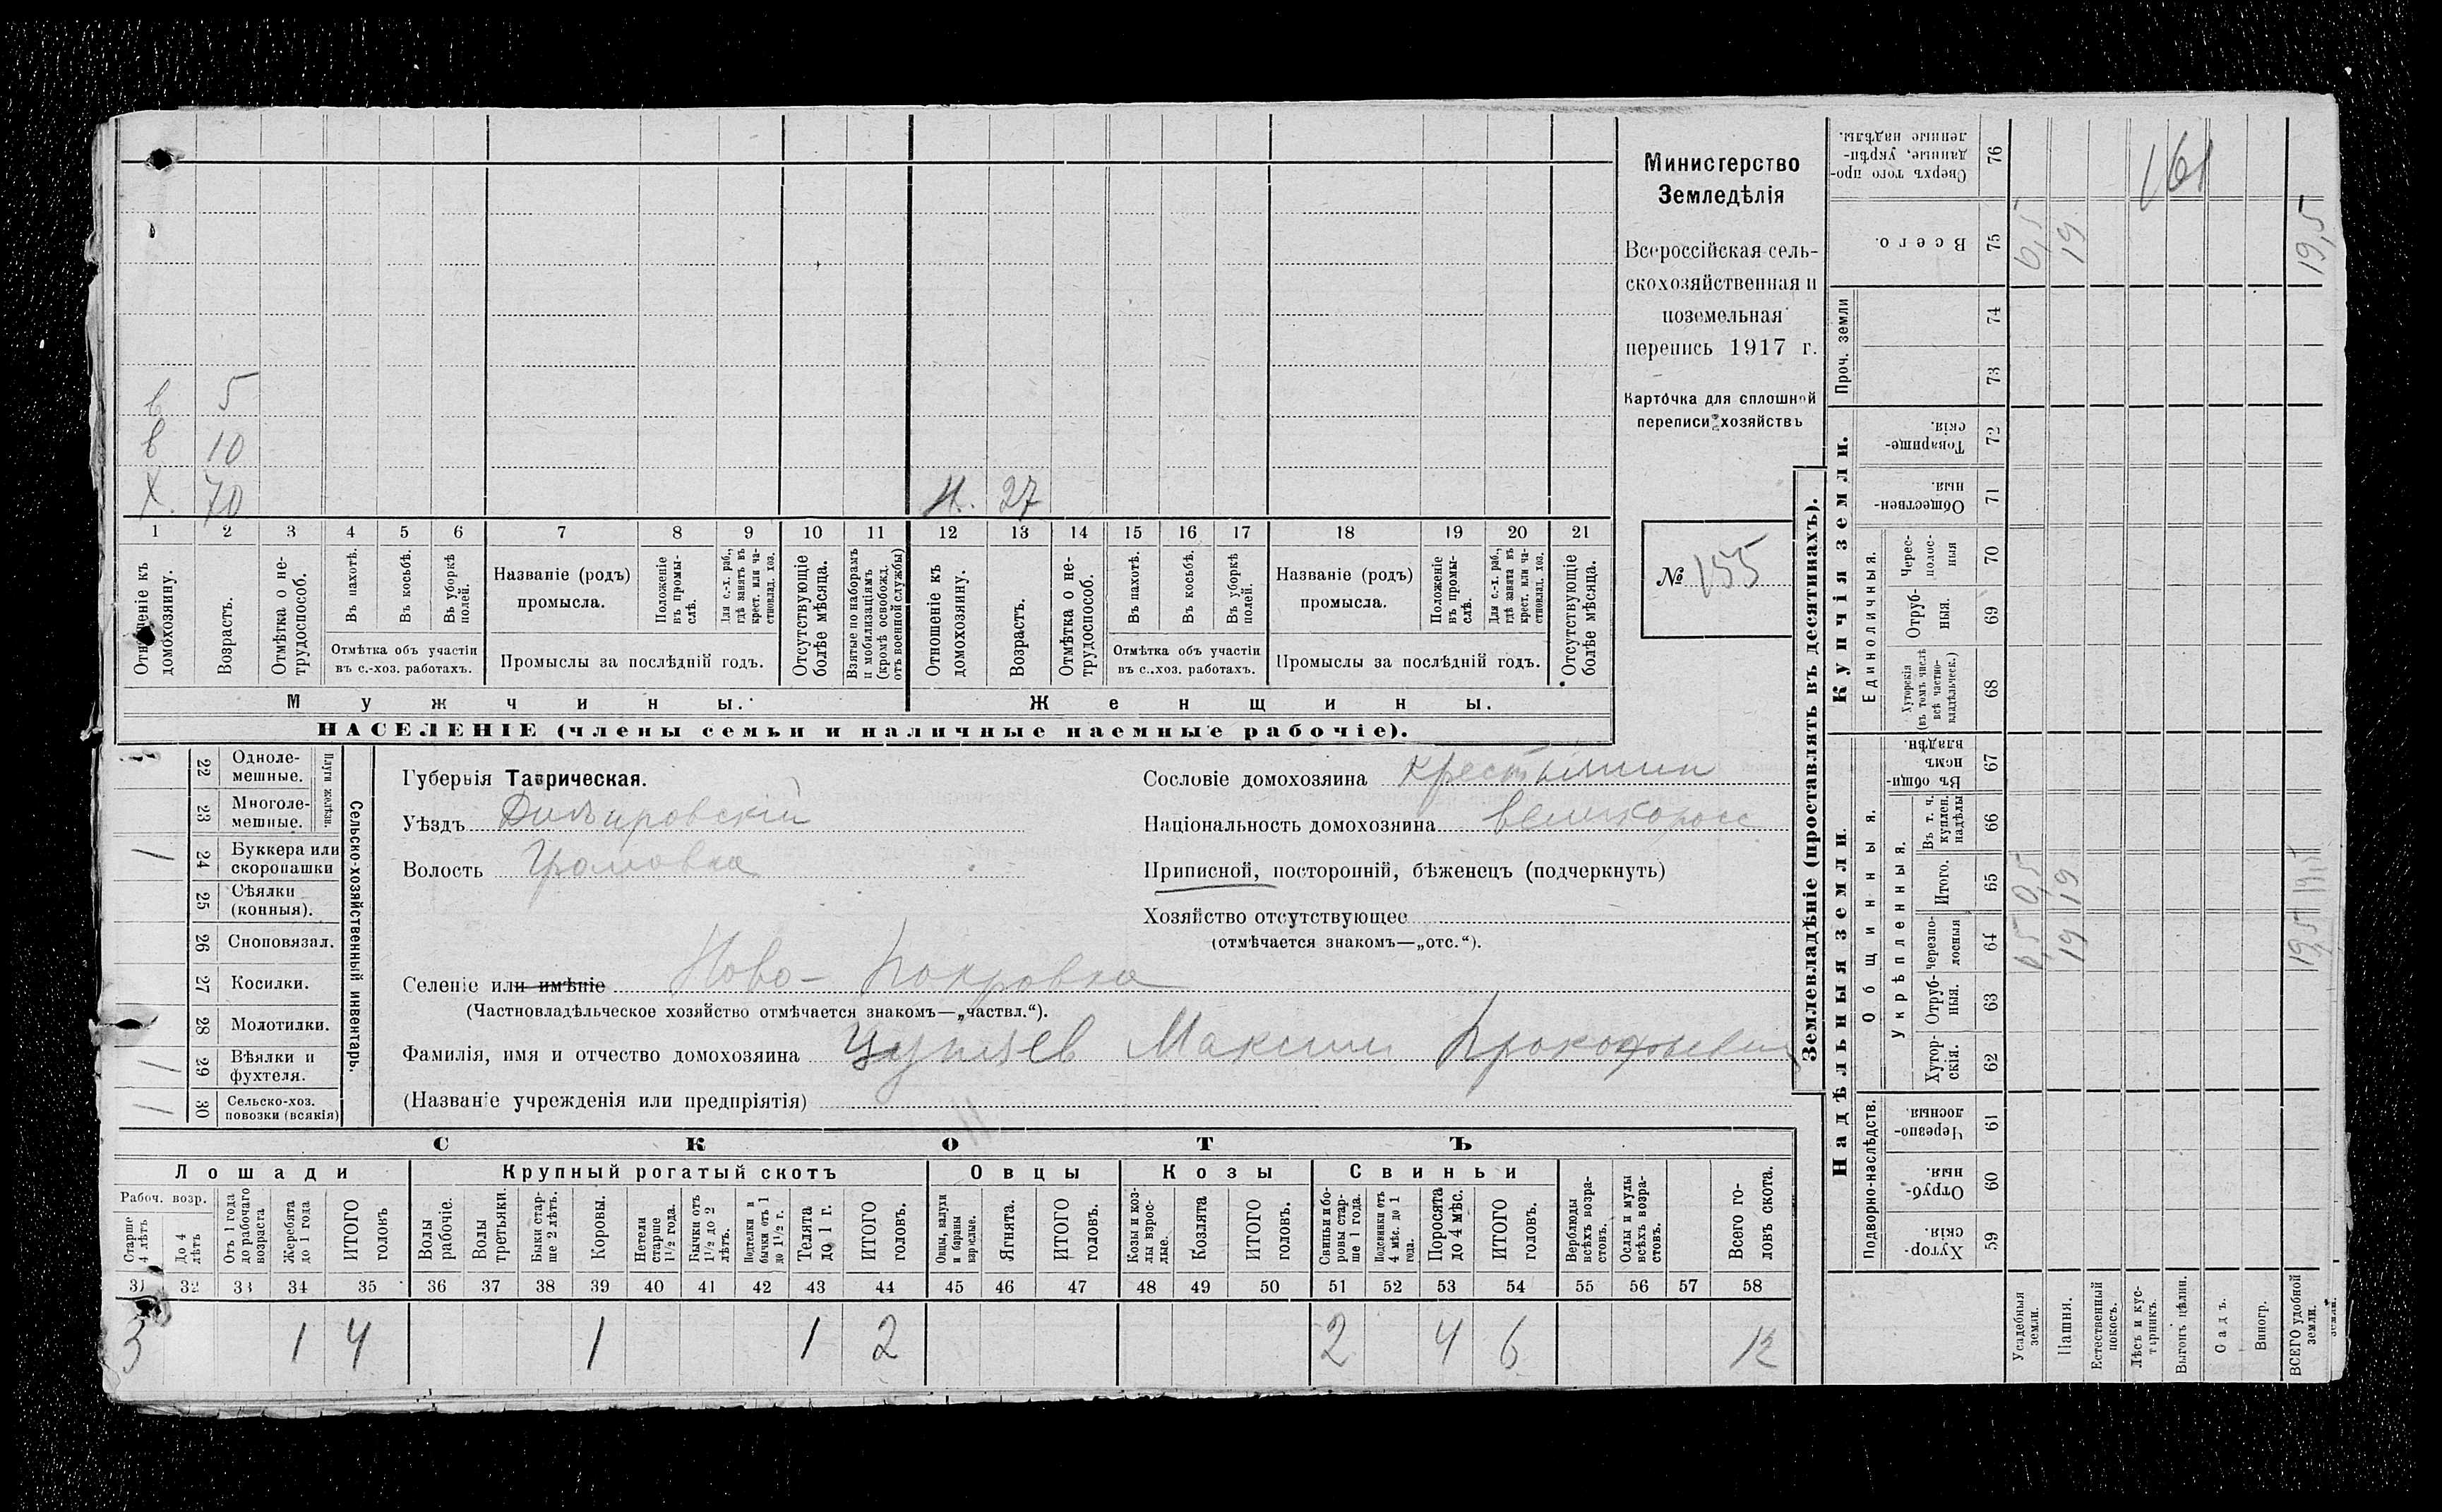 Министерство
Земледѣлія
Всероссійская сель-
скохозяйственная и
поземельная
перепись 1917 г.
Карточка для сплошной
переписи хозяйствъ
№ 155
в 5
в 10
Х. 70
27
1 2 3 4 5 6 7 8 9 10 11 12 13 14 15 16 17 18 19 20 21
Отношеніе къ домохозяину.
Возрастъ.
Отмѣтка о не-трудоспособ.
Въ пахотѣ.
Въ косьбѣ.
Въ уборкѣ полей.
Отмѣтка объ участіи
въ с.-хоз. работахъ.
Названіе (родъ)
промысла.
Положеніе въ промы-слѣ.
Для с.-х. раб., гдѣ занятъ въ крест. или ча-стновлад. хоз.
Промыслы за послѣдній годъ.
Отсутствующіе болѣе мѣсяца.
Взятые по наборамъ и мобилизаціямъ (кромѣ освобожд. отъ военной службы)
Отношеніе къ домохозяину.
Возрастъ.
Отмѣтка о не-трудоспособ.
Въ пахотѣ.
Въ косьбѣ.
Въ уборкѣ полей.
Отмѣтка объ участіи
въ с.-хоз. работахъ.
Названіе (родъ)
промысла.
Положеніе въ промы-слѣ.
Для с.-х. раб., гдѣ занята въ крест. или ча-стновлад. хоз.
Промыслы за послѣдній годъ.
Отсутствующіе болѣе мѣсяца.
Мужчины. Женщины.
НАСЕЛЕНІЕ (члены семьи и наличные наемные рабочіе).
22 Одноле-мешные.
23 Многоле-мешные.
Плуги желѣзн.
1 24 Буккера или скоропашки
25 Сѣялки (конныя).
26 Сноповязал.
27 Косилки.
28 Молотилки.
1 29 Вѣялки и фухтеля.
1 30 Сельско-хоз. повозки (всякія)
Сельско-хозяйственный инвентарь.
Губернія Таврическая.
Уѣздъ Днѣпровскій
Волость Громовка
Селеніе или имѣніе Ново-Покровка
(Частновладѣльческое хозяйство отмѣчается знакомъ—„частвл.“).
Фамилія, имя и отчество домохозяина Максим Прокофьевич
(Названіе учрежденія или предпріятія)
Сословіе домохозяина крестьянин
Національность домохозяина великоросс
Приписной, посторонній, бѣженецъ (подчеркнуть)
Хозяйство отсутствующее
(отмѣчается знакомъ—„отс.“).
СКОТЪ
Лошади Крупный рогатый скотъ Овцы Козы Свиньи
Рабоч. возр.
Старше 4 лѣтъ
До 4 лѣтъ
Отъ 1 года до рабочаго возраста
Жеребята до 1 года
ИТОГО головъ
Волы рабочіе.
Волы третьяки.
Быки стар-ше 2 лѣтъ.
Коровы.
Нетели старше 1½ года.
Бычки отъ 1½ до 2 лѣтъ.
Подтелки и бычки отъ 1 до 1½ г.
Телята до 1 г.
ИТОГО головъ.
Овцы, валухи и бараны взрослые.
Ягнята.
ИТОГО головъ.
Козы и коз-лы взрос-лые.
Козлята
ИТОГО головъ.
Свиньи и бо-ровы стар-ше 1 года.
Подсвинки отъ 4 мѣс. до 1 года.
Поросята до 4 мѣс.
ИТОГО головъ.
Верблюды всѣхъ возра-стовъ.
Ослы и мулы всѣхъ возра-стовъ.
Всего го-ловъ скота.
31 32 33 34 35 36 37 38 39 40 41 42 43 44 45 46 47 48 49 50 51 52 53 54 55 56 57 58
3 1 4 1 1 2 2 4 6 12
Землевладѣніе (проставлять въ десятинахъ).
Купчія земли.
Надѣльныя земли.
Сверхъ того про-данные, укрѣп-ленные надѣлы. 76
161
Всего. 75 0,5 19 19,5
Проч. земли
74
73
Товарище-скія. 72
Обществен-ныя. 71
Единоличныя.
Черес-полос-ныя 70
Отруб-ныя. 69
Хуторскія (въ томъ числѣ всѣ частно-владѣльческ.) 68
Общинныя.
Въ общи-номъ владѣн. 67
Укрѣпленныя.
Въ т. ч. куплен. надѣлы 66
Итого. 65 0,5 19
Черезпо-лосныя 64 0,5 19 19,5
Отруб-ныя. 63
Хутор-скія. 62
Подворно-наслѣдств.
Черезпо-лосныя. 61
Отруб-ныя. 60
Хутор-скія. 59
Усадебныя земли.
Пашня.
Естественный покосъ.
Лѣсъ и кус-тарникъ.
Выгонъ цѣлин.
Садъ.
Виногр.
ВСЕГО удобной земли.